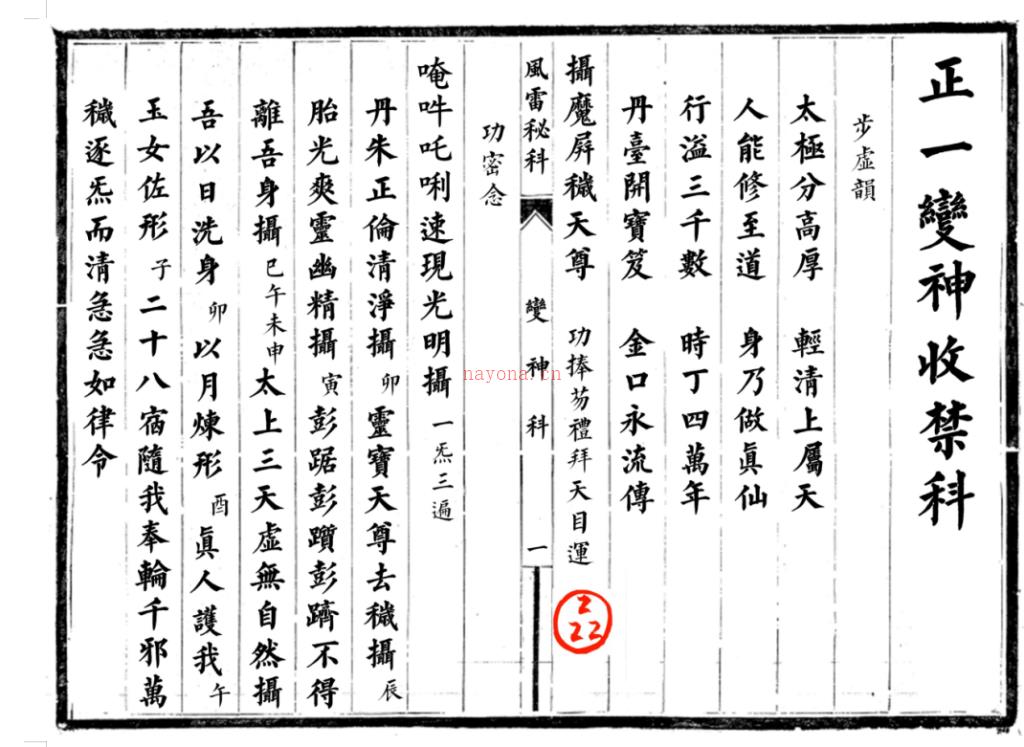 正一變神收禁科
步虛韻
太極分高厚 輕清上屬天
人能修至道 身乃做眞仙
行溢三千數 時丁四萬年
丹臺開寶笈 金口永流傳
攝魔屏穢天尊 功捧芴禮拜天目運
風雷秘科 變神科 一
功密念
唵吽吒唎速現光明攝 一炁三遍
丹朱正倫清淨攝 卯 靈寶天尊去穢攝 辰
胎光爽靈幽精攝 寅 彭踞彭躓彭躋不得
離吾身攝 巳午未申 太上三天虛無自然攝
吾以日洗身 卯 以月煉形 酉 眞人護我 午
玉女佐形 子 二十八宿隨我奉輪千邪萬
穢逐炁而清急急如律令
nayona.cn
2
22